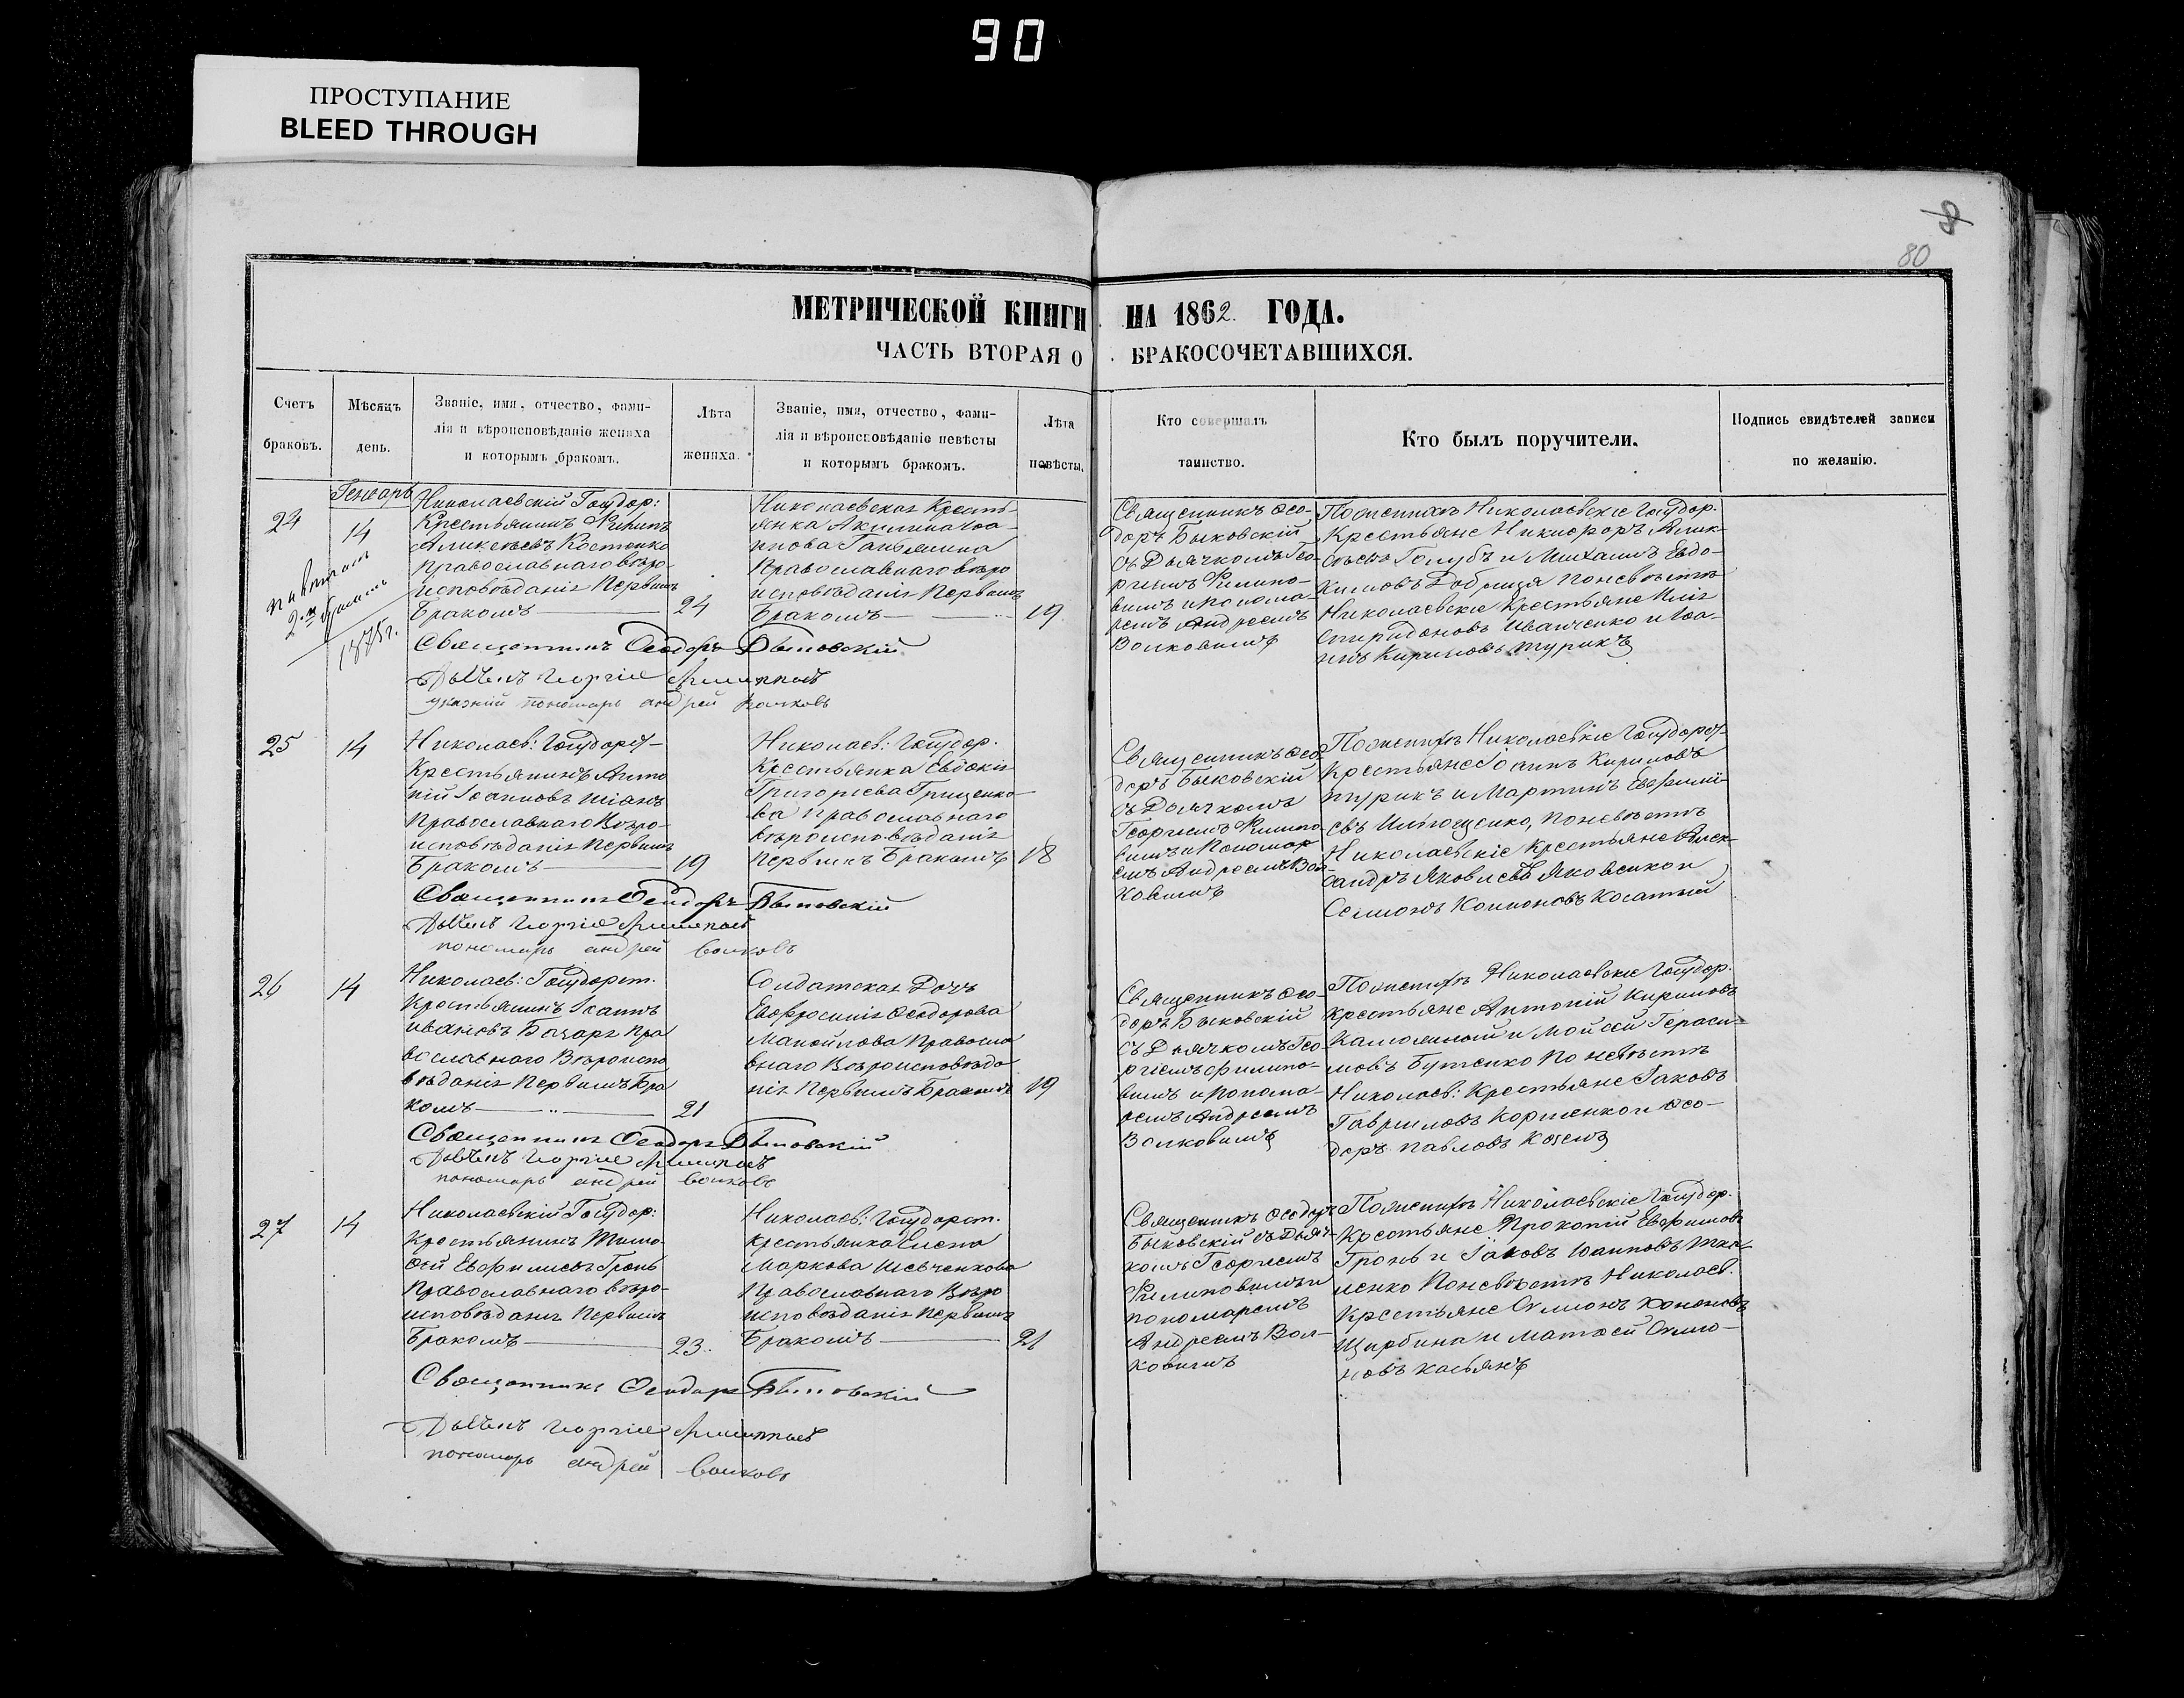 90
ПРОСТУПАНИЕ
BLEED THROUGH
80
МЕТРИЧЕСКОЙ КНИГИ НА 1862 ГОДА.
ЧАСТЬ ВТОРАЯ О БРАКОСОЧЕТАВШИХСЯ.
Счетъ браковъ.
Мѣсяцъ день.
Званіе, имя, отчество, фами-
лія и вѣроисповѣданіе жениха
и которымъ бракомъ.
Лѣта жениха.
Званіе, имя, отчество, фами-
лія и вѣроисповѣданіе невѣсты
и которымъ бракомъ.
Лѣта невѣсты.
Кто совершалъ таинство.
Кто былъ поручители.
Подпись свидѣтелей записи
по желанію.
Генварь
24
14
2-мъ
1875г.
Николаевскій Госудор:
Крестьянинъ
Аликсѣевъ Костенко
Православнаго вѣро-
исповѣданія Первымъ
Бракомъ
24
Николаевская Кресть-
янка Акилина Іоа-
ннова
Православнаго вѣро
исповѣданія Первымъ
Бракомъ
19
Священникъ Ѳео-
доръ Быковскій
съ Дьячкомъ Гео-
ргіемъ Филипо-
вимъ и Понома-
ремъ Андреемъ
Волковимъ
По женихѣ Николаевскіе Госудор.
Крестьяне Никифоръ Алик-
сѣевъ Голубъ и Михаилъ Евдо-
кимовъ Добрица по невѣстѣ
Николаевскіе Крестьяне Илія
Спиридоновъ Иванченко и Іоа-
ннъ Кириловъ Турикъ
Священникъ Ѳеодоръ Быковскій
Дьячекъ Георгіе Филиповъ
указній пономарь андрей волковъ
25
14
Николаев: Госудорст-
Крестьянинъ Анто
ній Іоанновъ
Православнаго Вѣро-
исповѣданія Первымъ
Бракомъ
19
Николаев: Госудор.
Крестьянка Евдокія
Григоріева Грищенко-
ва Православнаго
вѣроисповѣданія
Первымъ Бракомъ
18
Священникъ Ѳео-
доръ Быковскій
съ Дьячкомъ
Георгіемъ Филипо-
вимъ и Пономар
емъ Андреемъ Вол-
ковимъ
По женихѣ Николаевскіе Госудорст-
Крестьяне Іоаннъ Кириловъ
Турикъ и Мартинъ Евфимі-
евъ Ильющенко, по невѣстѣ
Николаевскіе Крестьяне Алек-
сандръ Яковлевъ Яковенко и
Семіонъ Косатый
Священникъ Ѳеодоръ Быковскій
Дьячекъ Георгіе Филиповъ
пономарь андрей волковъ
26
14
Николаев: Госудорст.
Крестьянинъ Іоаннъ
Ивановъ Бацаръ Пра
вославнаго Вѣроиспо
вѣданія Первымъ Бра
комъ
21
Солдатская Дочь
Евфросинія Ѳеодорова
Манойлова Правосла
внаго Вѣроисповѣда
нія Первымъ Бракомъ
19
Священникъ Ѳео-
доръ Быковскій
съ Дьячкомъ Гео-
ргіемъ Филипо-
вимъ и Понома-
ремъ Андреемъ
Волковимъ
По женихѣ Николаевскіе Госудор.
Крестьяне Антоній Кириловъ
и Мойсей Гераси-
мовъ Бутенко по невѣстѣ
Николаев: Крестьяне Іаковъ
Гавриловъ Корженко и Ѳео-
доръ Павловъ
Священникъ Ѳеодоръ Быковскій
Дьячекъ Георгіе Филиповъ
пономарь андрей волковъ
27
14
Николаевскій Госудор:
Крестьянинъ Тимо-
фей Евфимиевъ Гронь
Православнаго вѣро-
исповѣданія Первымъ
Бракомъ
23.
Николаев: Госудорст.
Крестьянка Елена
Маркова Шевченкова
Православнаго Вѣро
исповѣданія Первымъ
Бракомъ
21
Священникъ Ѳеодоръ
Быковскій съ Дьяч-
комъ Георгіемъ
Филиповимъ и
пономаремъ
Андреемъ Вол-
ковимъ
По женихѣ Николаевскіе Госудор.
Крестьяне Прокопій Евфимовъ
Гронь и Іаковъ Іоанновъ Тка-
ченко по невѣстѣ Николаев.
Крестьяне Симіонъ Кононовъ
Щербина и Матѳей Симо-
новъ Касьянъ
Священникъ Ѳеодоръ Быковскій
Дьячекъ Георгіе Филиповъ
пономарь андрей волковъ